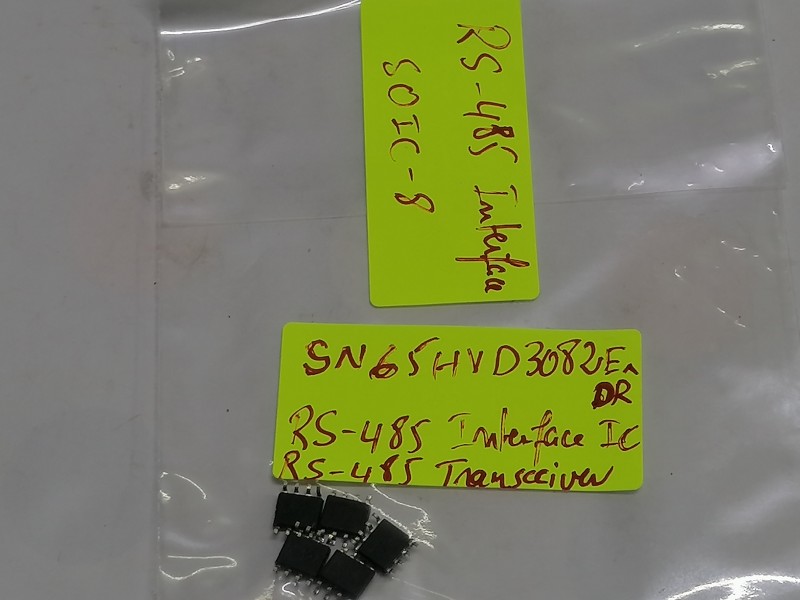 RS-485 Interface
SOIC-8
SN65HVD3082E
DR
RS-485 Interface IC
RS-485 Transceiver